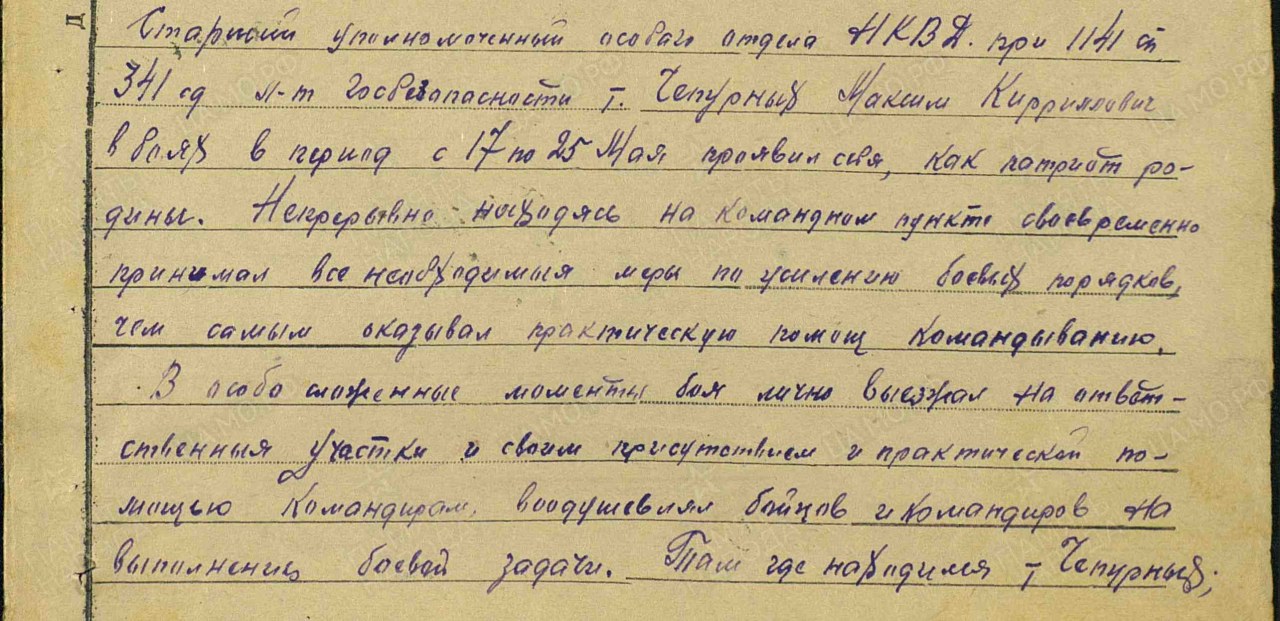 Старший уполномоченный особаго отдела НКВД. при 1141 сп
341 сд л-т Госбезопасности т. Чепурных Максим Кирриллович
в боях в период с 17 по 25 Мая проявил себя, как патриот ро-
дины. Непрерывно находясь на командном пункте своевременно
принимал все необходимыя меры по усилению боевых порядков,
чем самым оказывал практическую помощ командыванию.
В особо сложенные моменты боя лично выезжал на ответ-
ственныя участки и своим присутствием и практической по-
мощью командирам, воодушевлял бойцов и командиров на
выполнению боевой задачи. Там где находился т Чепурных;